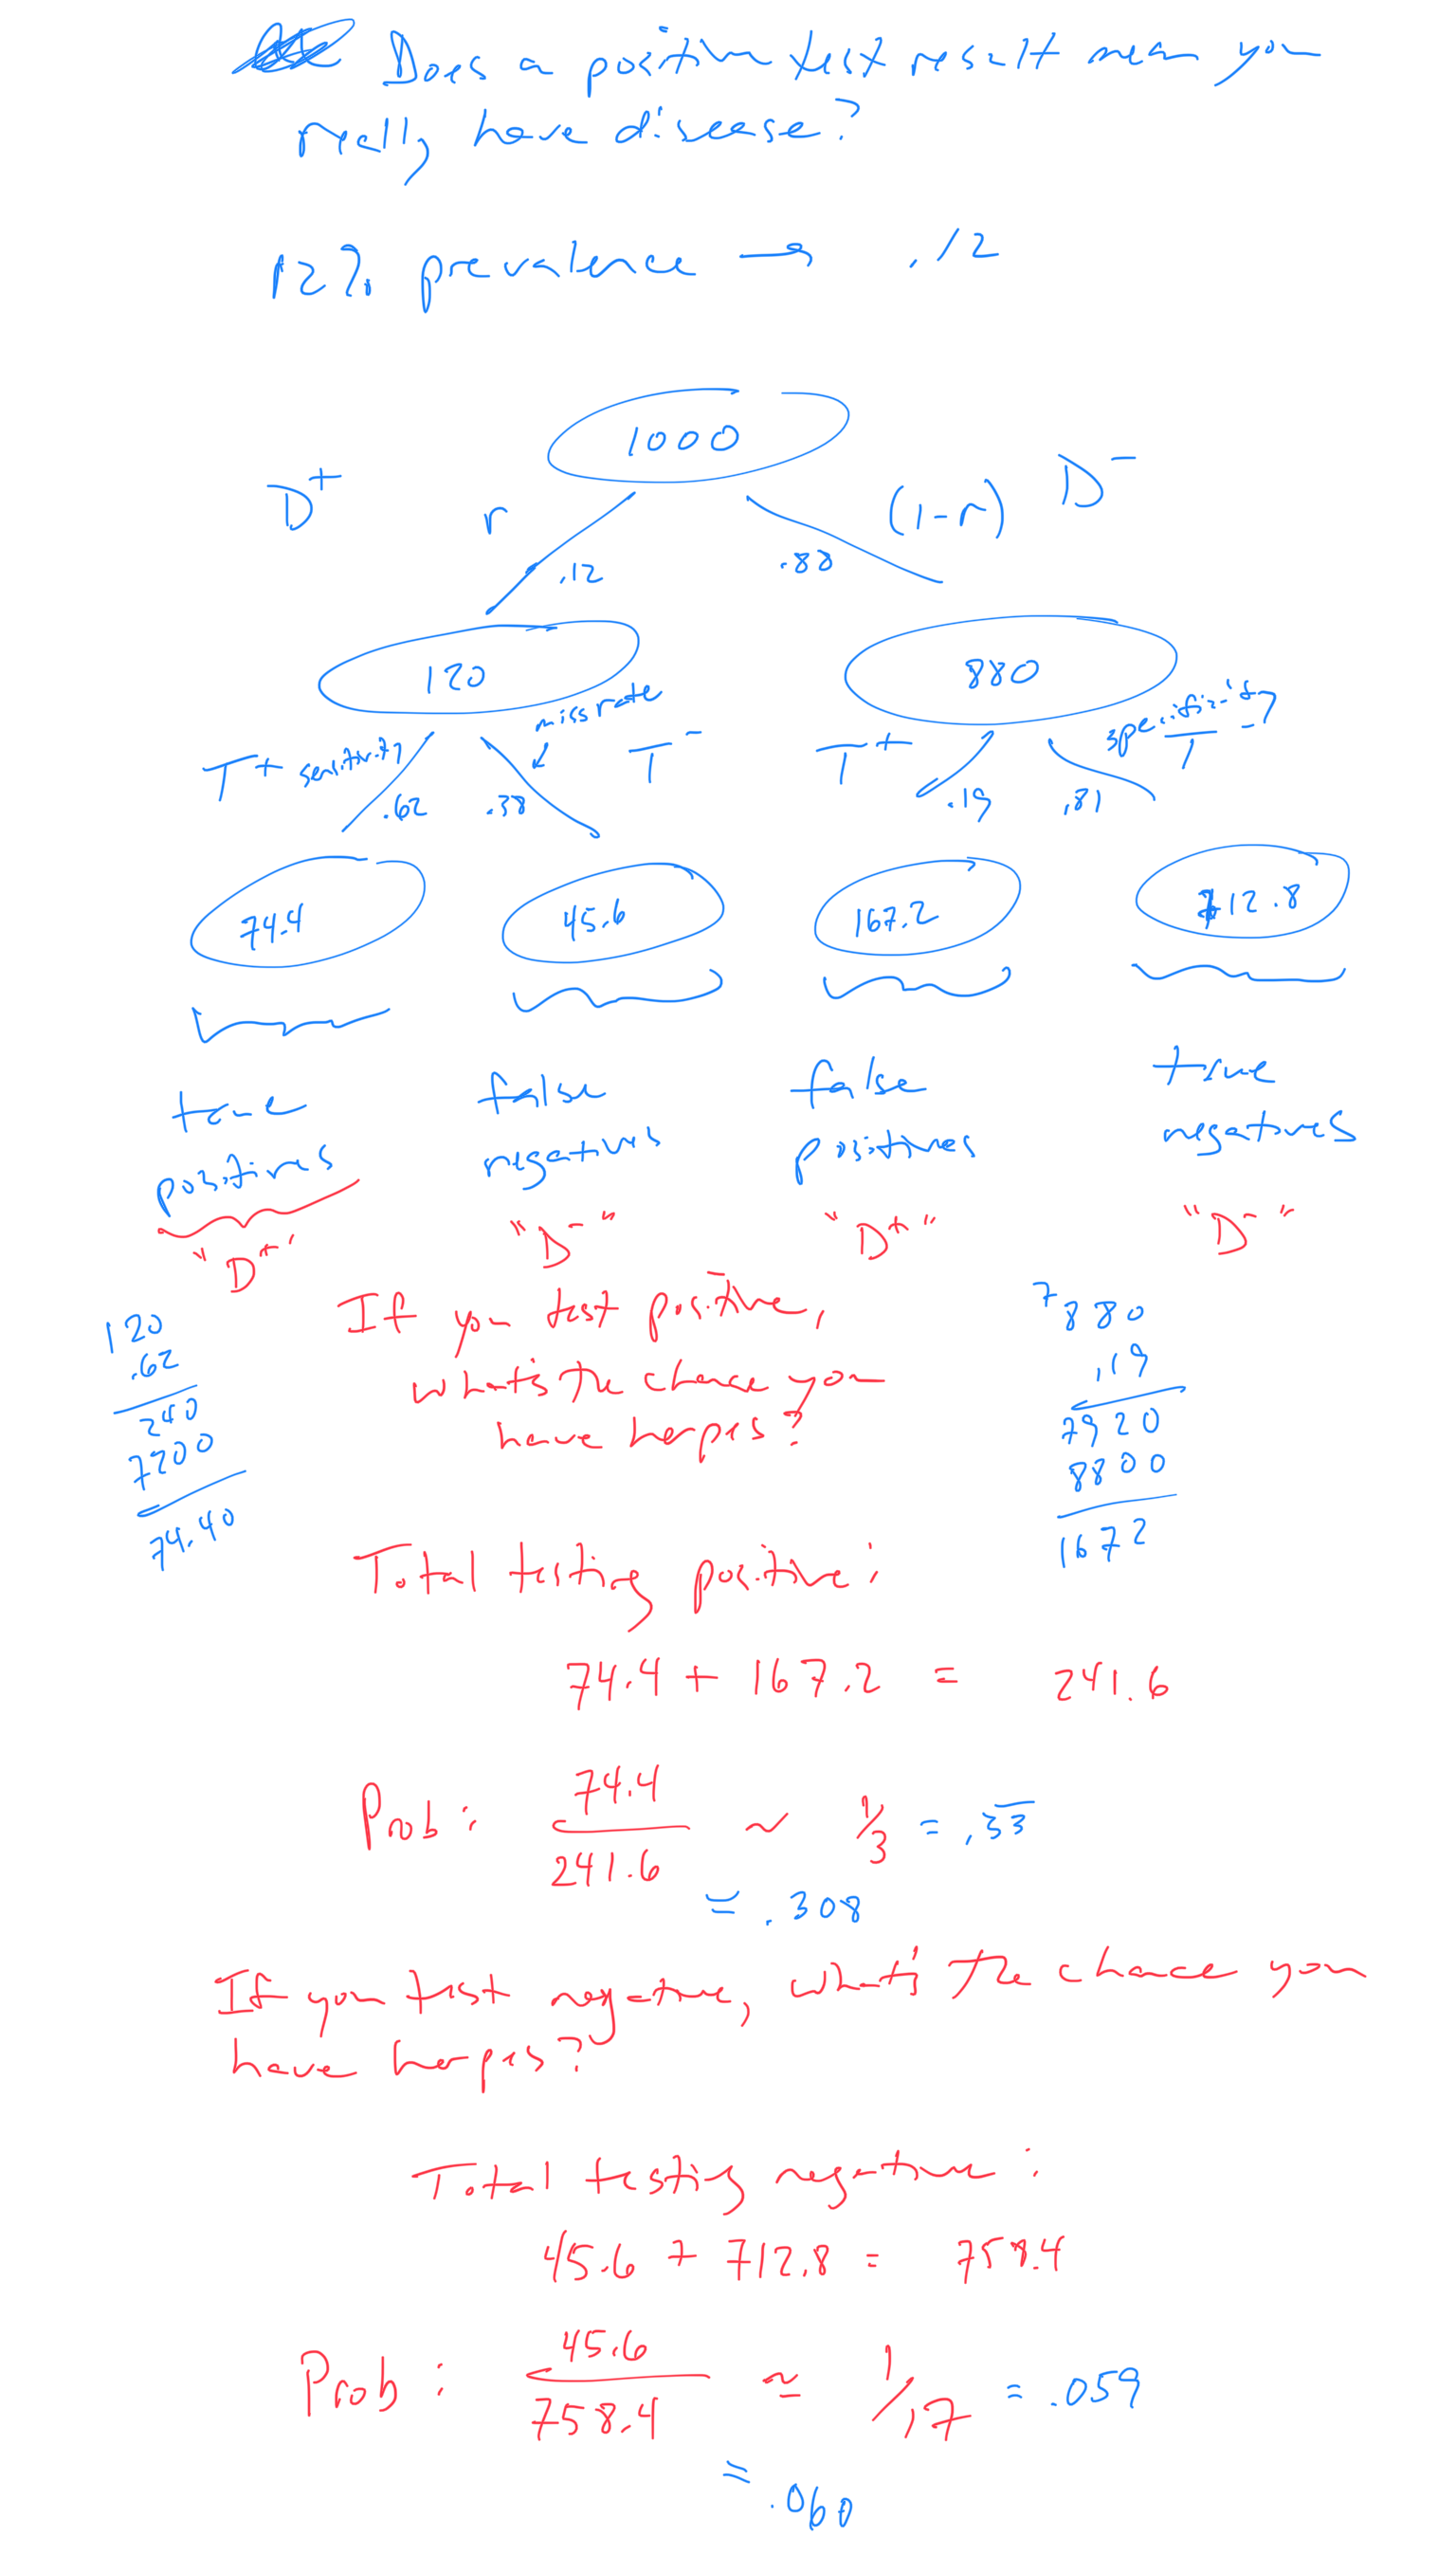 Does a positive test result mean you
really have disease?
12% prevalence → .12
1000
D+ r (1-r) D-
.12 .88
120 880
miss rate specificity
T+ sensitivity T- T+ T-
.62 .38 .19 .81
74.4 45.6 167.2 712.8
true false false true
positives negatives positives negatives
"D+" "D-" "D+" "D-"
120
.62
240
7200
74.40
If you test positive,
what's the chance you
have herpes?
7
880
.19
7920
8800
1672
Total testing positive:
74.4 + 167.2 = 241.6
Prob: 74.4/241.6 ~ 1/3 = .33
= .308
If you test negative, what's the chance you
have herpes?
Total testing negative:
45.6 + 712.8 = 758.4
Prob: 45.6/758.4 ≈ 1/17 = .059
= .060